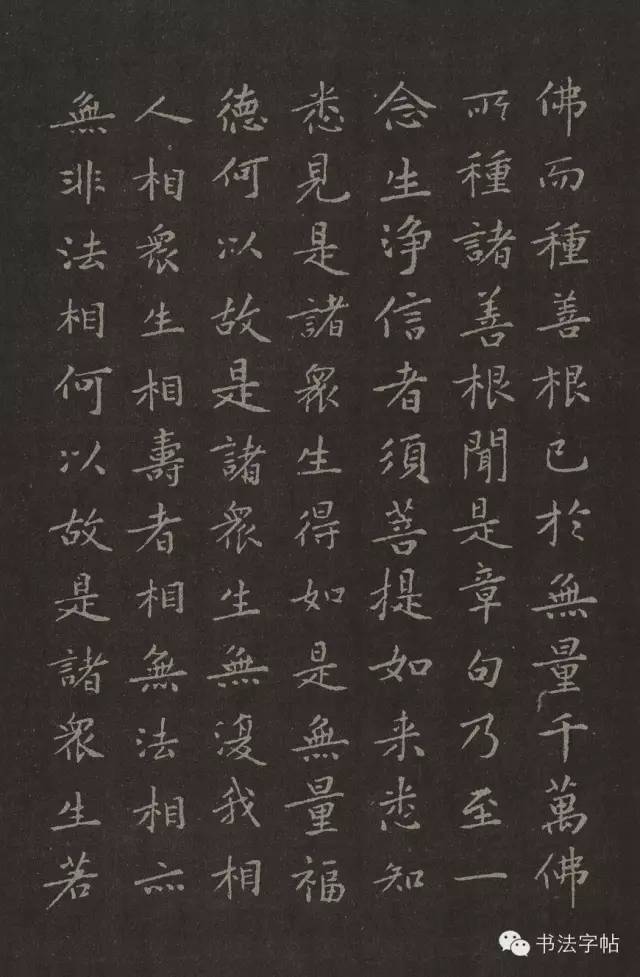 佛而種善根已於無量千萬佛
所種諸善根聞是章句乃至一
念生淨信者須菩提如来悉知
悉見是諸眾生得如是無量福
德何以故是諸眾生無復我相
人相眾生相壽者相無法相亦
無非法相何以故是諸眾生若
书法字帖